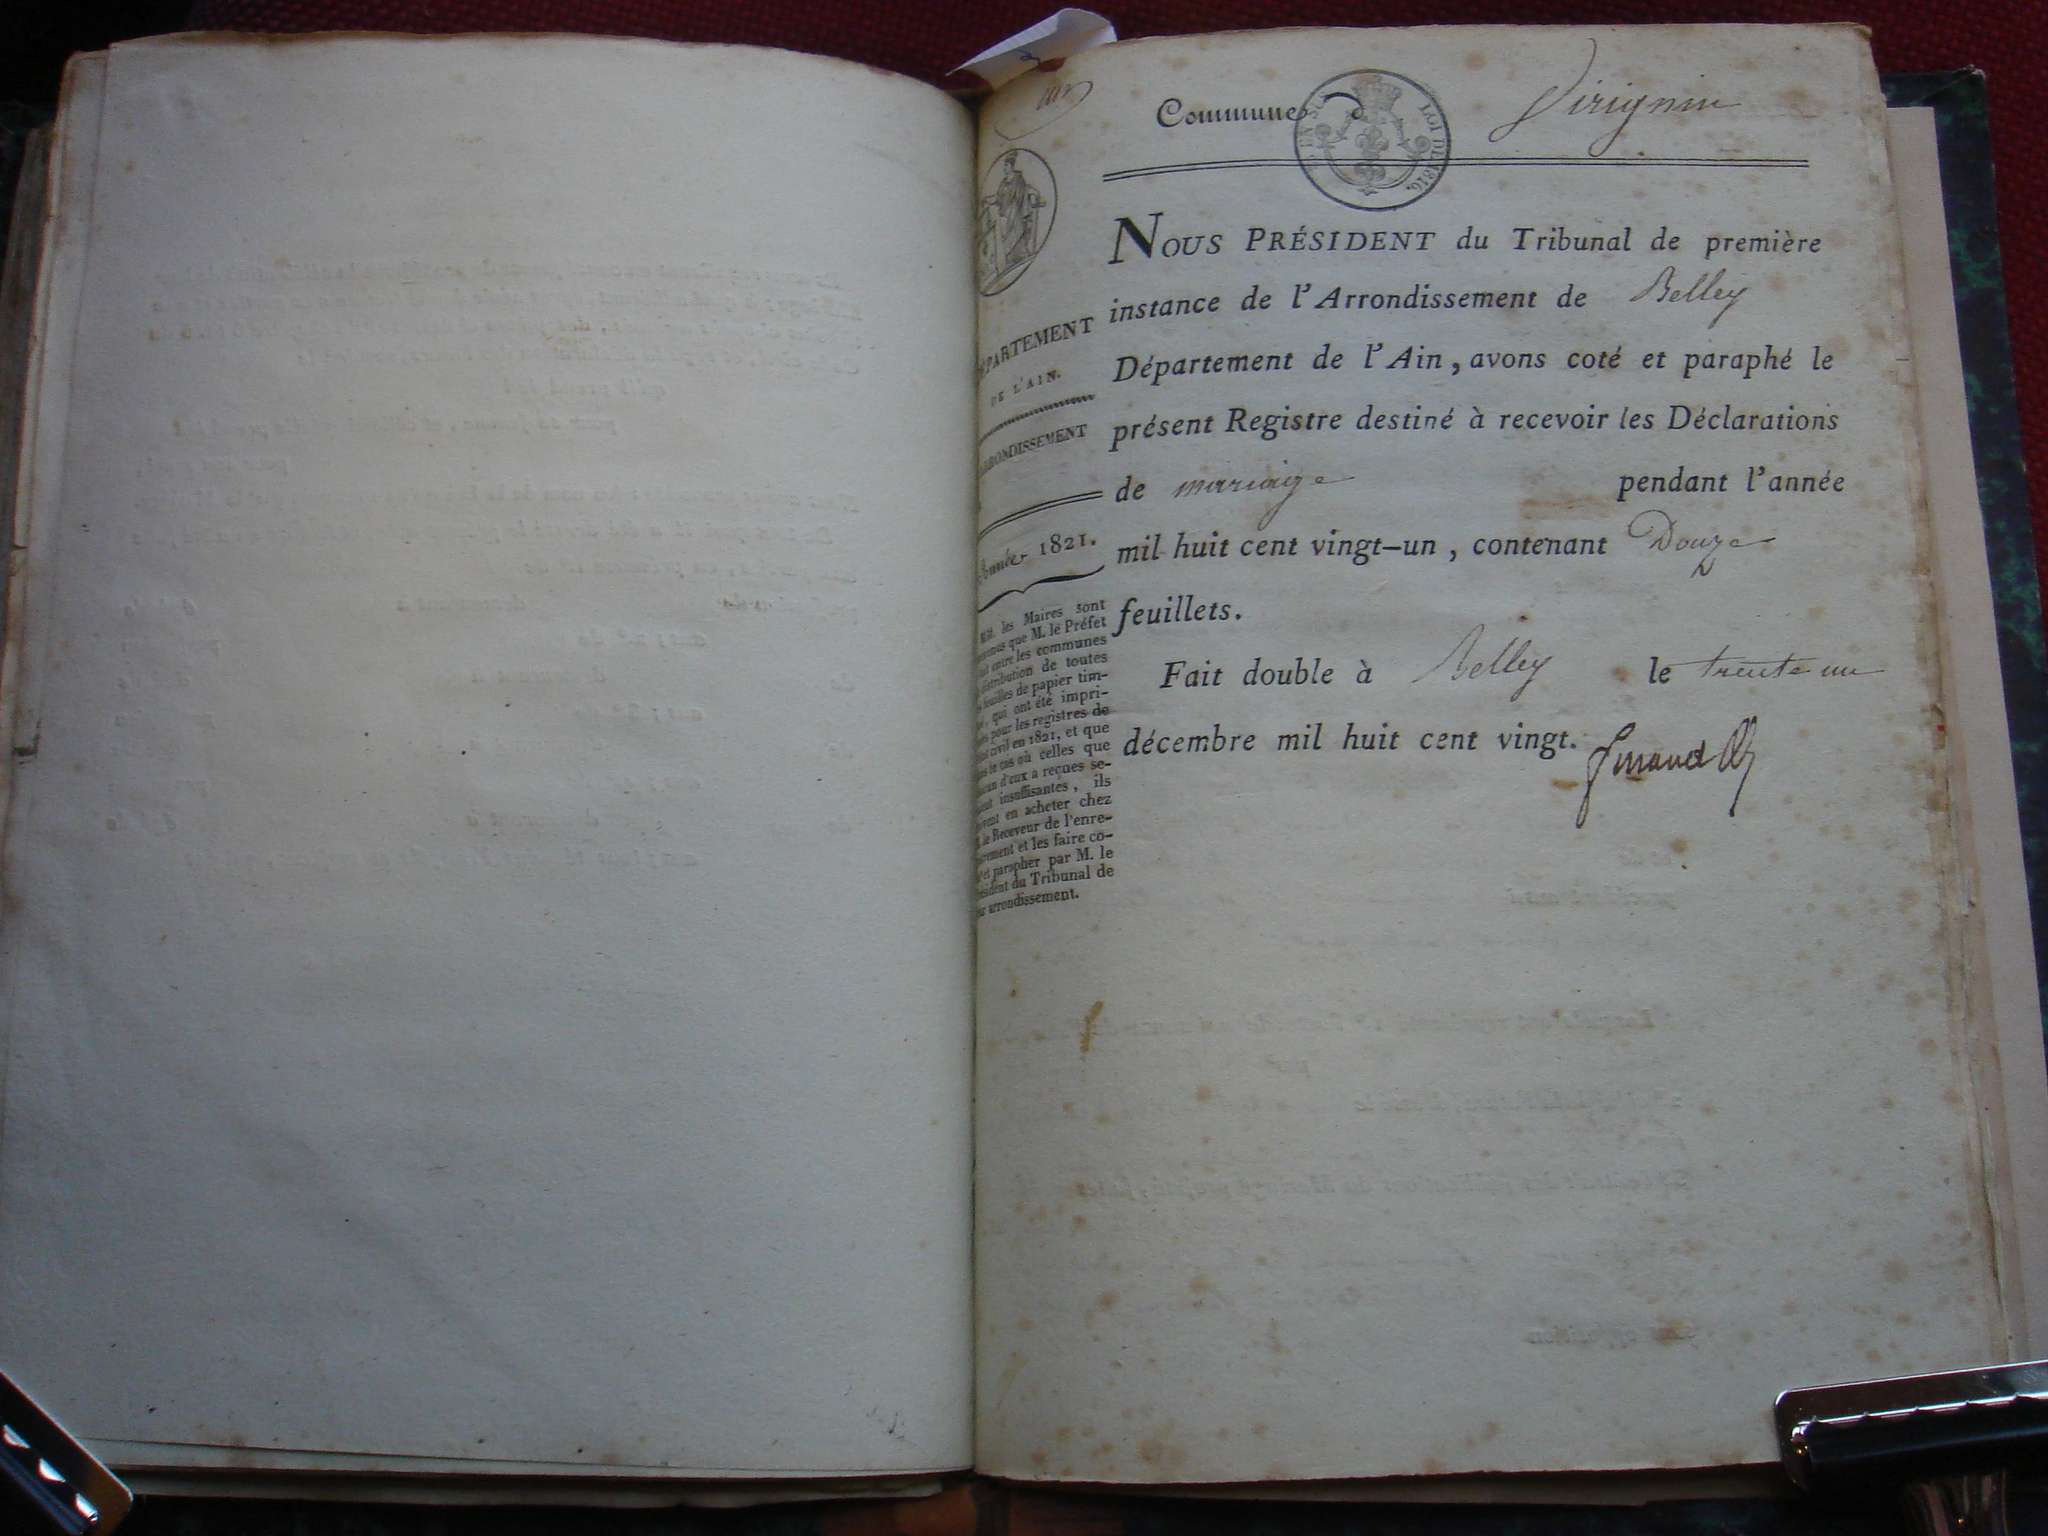 Commune d Virignin
LOI DE 1816.
NOUS PRÉSIDENT du Tribunal de première
instance de l'Arrondissement de Belley
Département de l'Ain, avons coté et paraphé le
présent Registre destiné à recevoir les Déclarations
de mariage pendant l'année
mil huit cent vingt-un, contenant Douze
feuillets.
Fait double à Belley le trente un
décembre mil huit cent vingt.
PARTEMENT
DE L'AIN.
RONDISSEMENT
Année 1821.
MM. les Maires sont
que M. le Préfet
entre les communes
distribution de toutes
feuilles de papier tim-
qui ont été impri-
pour les registres de
civil en 1821, et que
le cas où celles que
d'eux a reçues se-
insuffisantes, ils
en acheter chez
le Receveur de l'enre-
et les faire co-
et parapher par M. le
du Tribunal de
arrondissement.